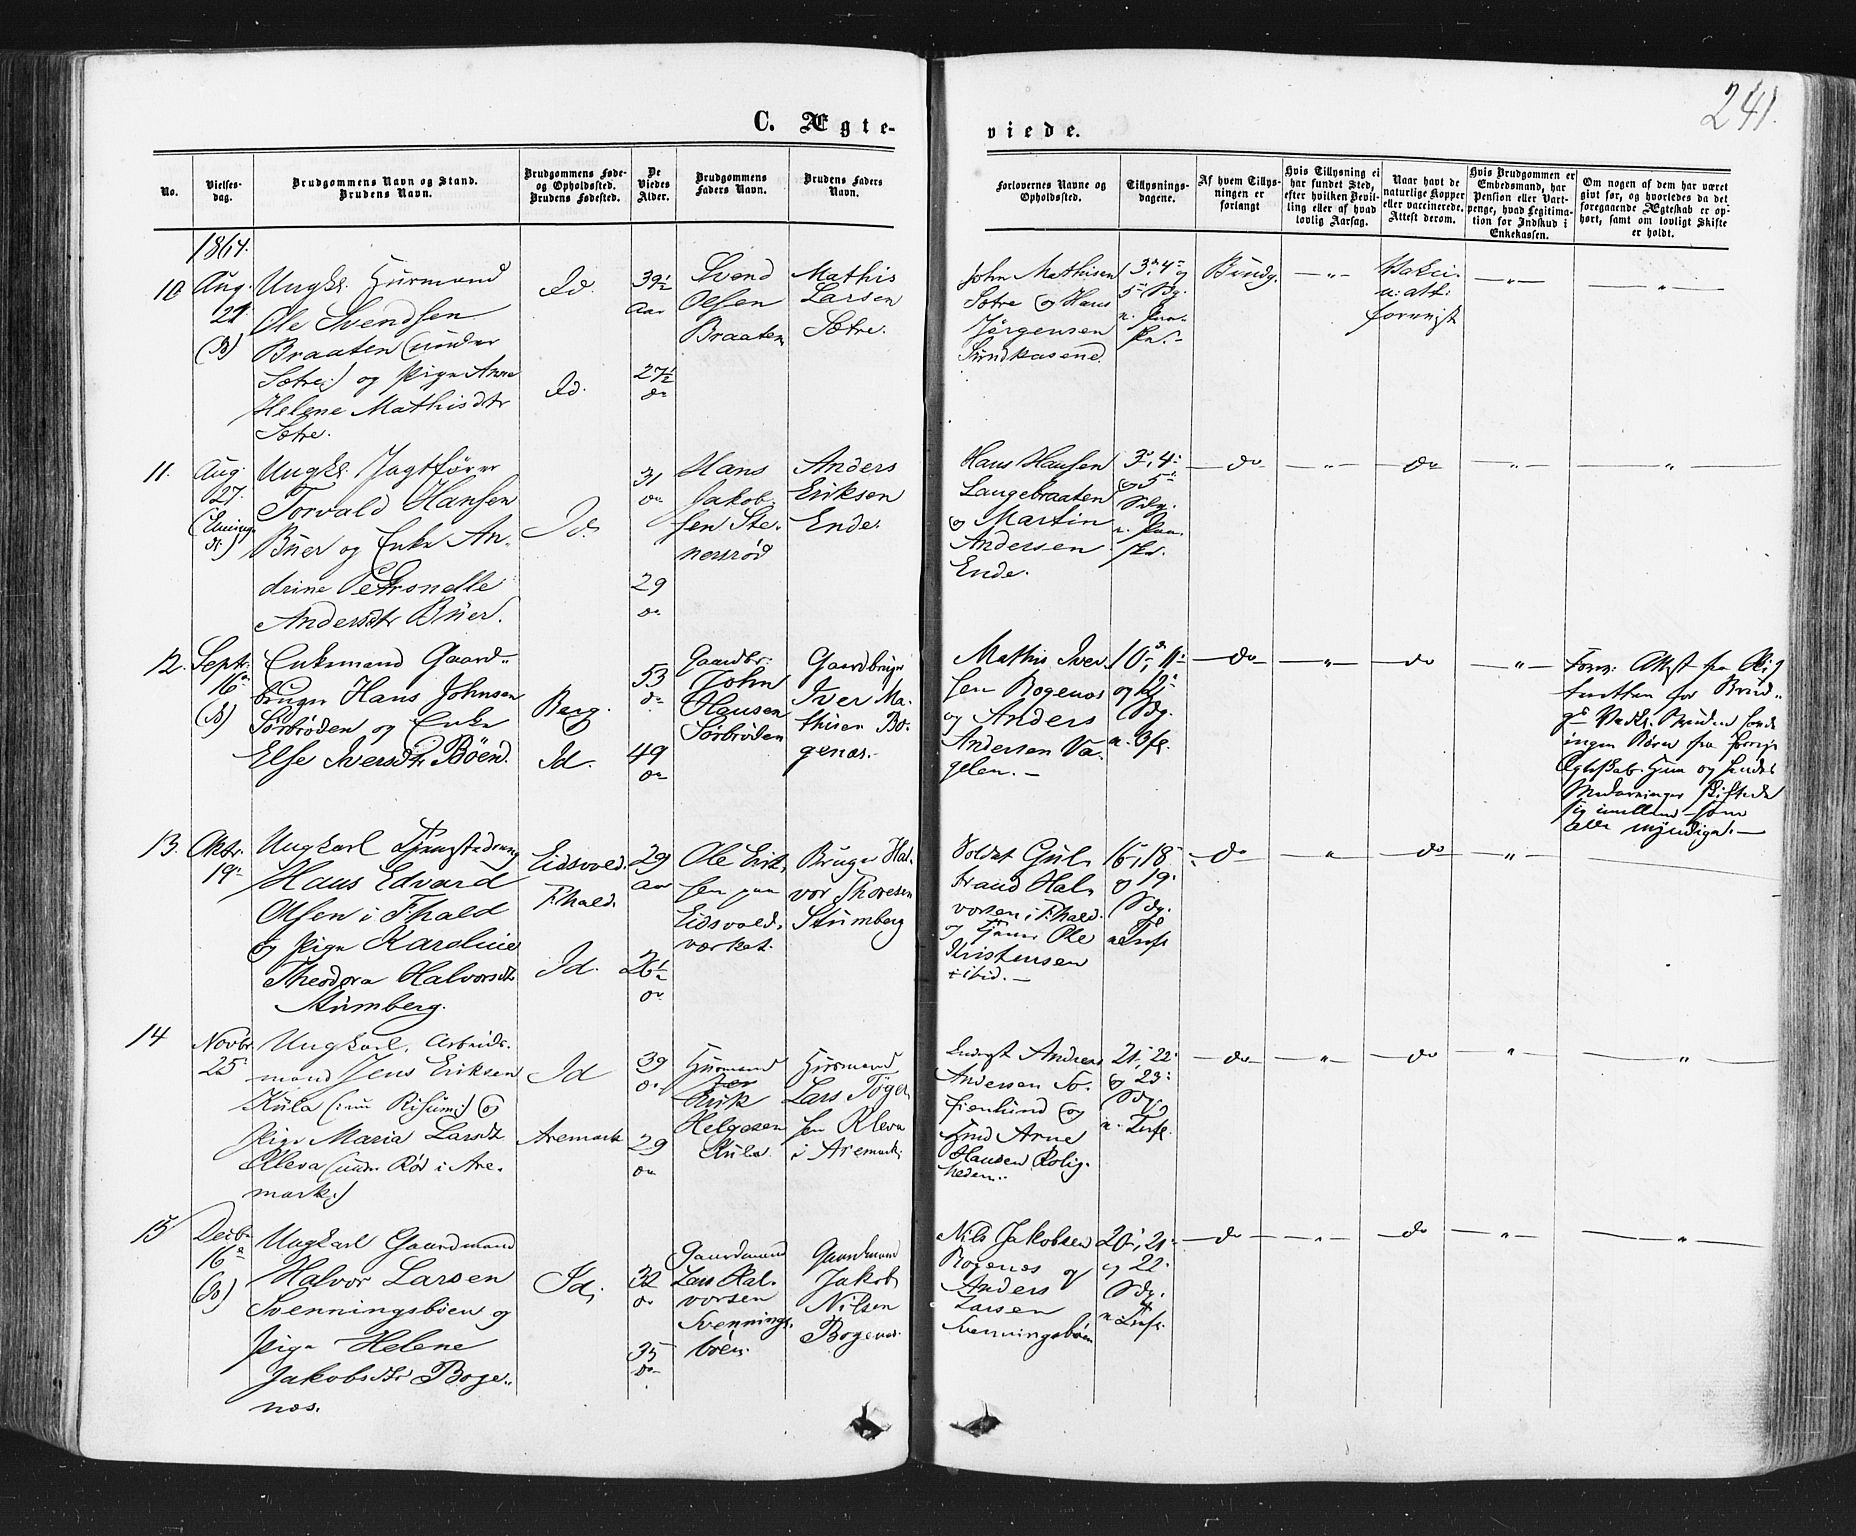 241.
C. Ægte-
viede.
No.
Vielses-
dag.
Brudgommens Navn og Stand.
Brudens Navn.
Brudgommens Føde-
og Opholdssted.
Brudens Fødested.
De
Viedes
Alder.
Brudgommens
Faders Navn.
Brudens Faders
Navn.
Forlovernes Navne og
Opholdssted.
Tillysnings-
dagene.
Af hvem Tillys-
ningen er
forlangt
Hvis Tillysning ei
har fundet Sted,
efter hvilken Bevil-
ling eller af hvad
lovlig Aarsag.
Naar havt de
naturlige Kopper
eller vaccinerede.
Attest derom.
Hvis Brudgommen er
Embedsmand, har
Pension eller Vart-
penge, hvad Legitima-
tion for Indskud i
Enkekassen.
Om nogen af dem har været
givt før, og hvorledes da det
foregaaende Ægteskab er op-
hørt, samt om lovligt Skifte
er holdt.
1864.
10
Aug.
21
(B)
Ungk. Huusmand
Ole Svendsen
Braaten (under
Sætre) og Pige Anne
Helene Mathisdtr
Sætre.
Id.
Id.
39½
Aar
27½
do
Svend
Olsen
Braaten
Mathis
Larsen
Sætre.
John Mathisen
Sætre og Hans
Jørgensen
Sundkasene
3, 4 og
5 Sdg.
Brudg.
— " —
Vakci.
n: att:
forevist
— " —
— " —
11.
Aug.
27.
Ungk. Jagtfører
Torvald Hansen
Buer og Enke An-
drine Petronelle
Andersdtr Buer.
Id
31
do
29
do
Hans
Jakob-
sen Ste-
nersrød
Anders
Eriksen
Ende.
Hans Hansen
Langebraaten
og Martin
Andersen
Ende.
3, 4
og 5
Sdg.
— do —
— " —
do
— " —
"
12.
Septr.
16
(B)
Enkemand Gaard-
bruger Hans Johnsen
Sørbrøden og Enke
Else Iversdtr Bøen.
Berg.
Id.
53
do
49
do
Gaardbr:
John
Hansen
Sørbrøden
Gaardbruger
Iver Ma-
thisen Bo-
genæs.
Mathis Iver-
sen Bogenæs
og Anders
Andersen Va-
gelen. —
10, 11
og 12
Sdg.
— do —
— " —
do
— " —
Forev: Attest fra Ski-
fteretten for Brud-
g. Vedk. Bruden havde
ingen Børn fra forrige
Ægteskab. Hun og hendes
Medarvinger skiftede
sig imellem som
alle myndige. —
13.
Oktr.
19
Ungkarl
Hans Edvard
Olsen i Fhald
og Pige Karoline
Theodora Halvorsdtr
Stumberg.
Eidsvold.
Fhald.
Id.
29
Aar
26½
do
Ole Erik-
sen paa
Eidsvold-
værket.
Bruger Hal-
vor Thoresen
Stumberg
Soldat Gul-
brand Hal-
vorsen i Fhald.
og Ole
Kristensen
ibid. —
16, 18
og 19
Sdg.
— do —
"
do
— " —
14
Novbr.
25
Ungkarl, Arbeids-
mand Jens Eriksen
Kula (nu Risum) og
Pige Maria Larsdtr
Kleva (under Rød i Are-
mark.)
Id
Aremark
39
do
29
do
Huusmand
Erik
Helgesen
Kula
Huusmand
Lars Tøger-
sen Kleva
i Aremark.
Andreas
Andersen So-
fienlund og
Arne
Hansen Rolig-
heden.
21, 22
og 23
Sdg.
— do —
— " —
do
"
"
15
Decbr.
16
(B)
Ungkarl Gaardmand
Halvor Larsen
Svenningsbøen og
Pige Helene
Jakobsdtr Boge-
næs.
Id.
32
do
35
do
Gaardmand
Lars Hal-
vorsen
Svennings-
bøen.
Gaardmand
Jakob
Nilsen
Bogenæs.
Nils Jakobsen
Bogenæs og
Anders
Larsen
Svenningsbøen
20, 21
og 22
Sdg.
— do —
"
do
— " —
"